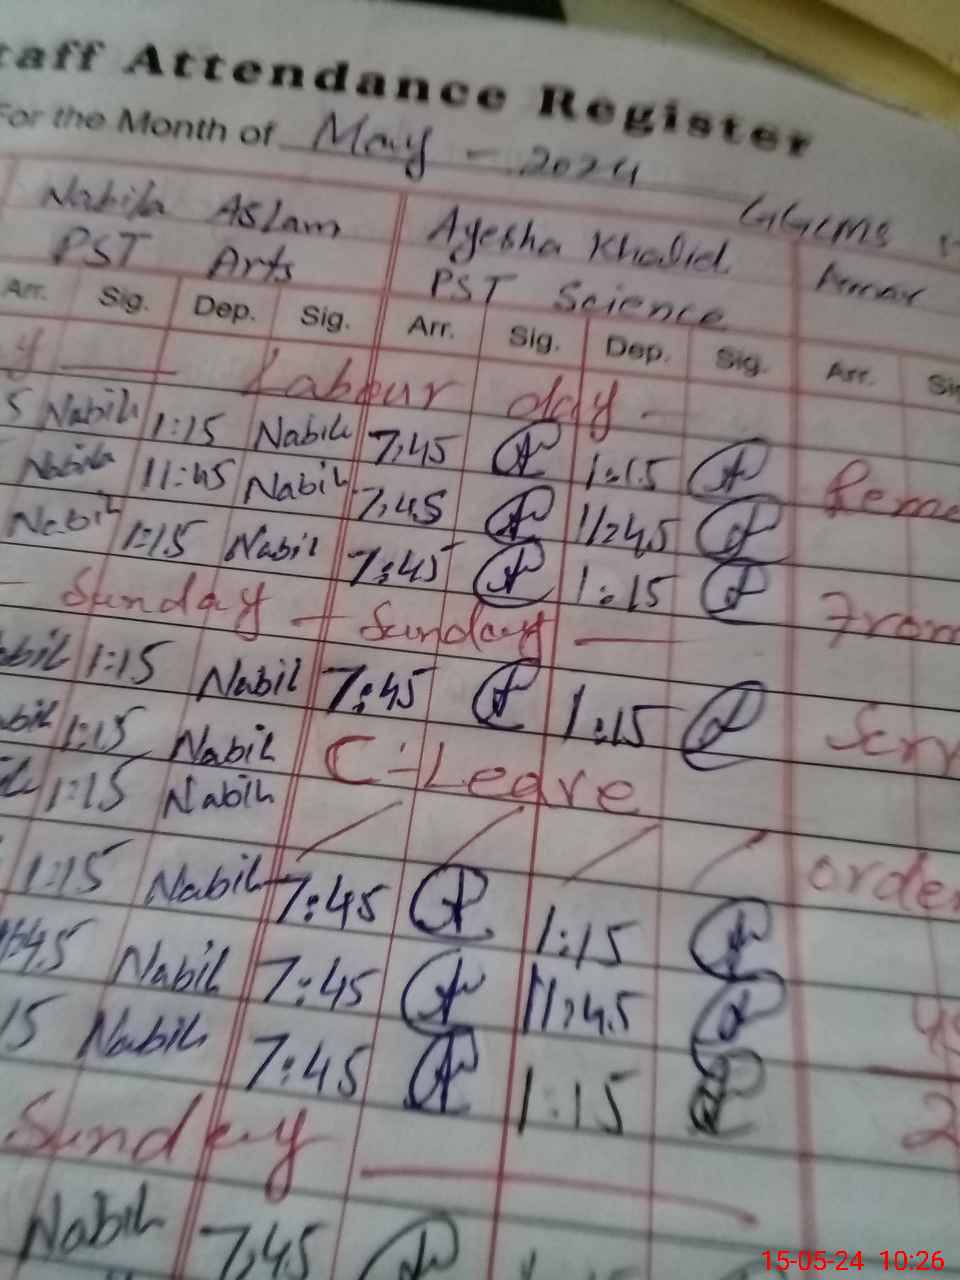 taff Attendance Register
For the Month of May - 2024
GGCMS
Nabila Aslam Ayesha Khalid
PST Arts PST Science
Arr. Sig. Dep. Sig. Arr. Sig. Dep. Sig. Arr. Si
y — Labour day —
5 Nabil 1:15 Nabil 7:45 1:15
Nabil 11:45 Nabil 7:45 11:45
Nabil 1:15 Nabil 7:45 1:15 From
— Sunday — Sunday —
abil 1:15 Nabil 7:45 1:15
abil 1:15 Nabil C-Leave
1:15 Nabil
1:15 Nabil 7:45 1:15 order
Nabil 7:45 11:45
15 Nabil 7:45 1:15 2
Sunday
Nabil 7:45
15-05-24 10:26